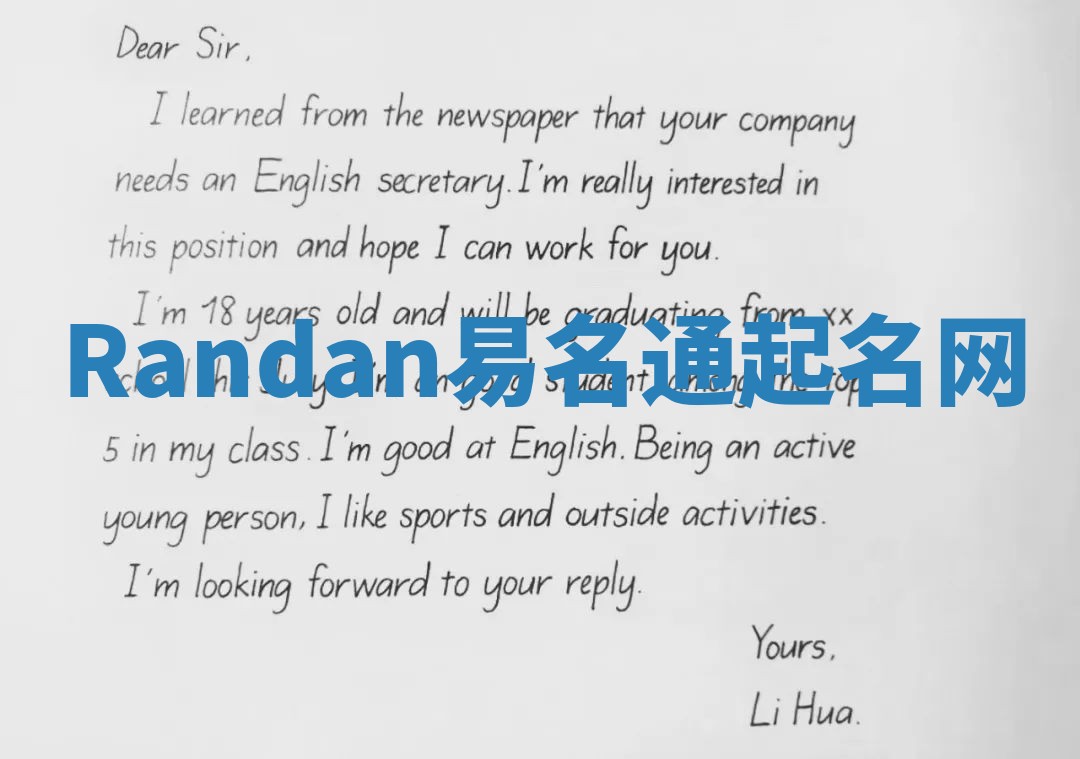 Dear Sir,
I learned from the newspaper that your company
needs an English secretary. I'm really interested in
this position and hope I can work for you.
I'm 18 years old and will be graduating from xx
Randan易名通起名网
school this July. I'm student among the top
5 in my class. I'm good at English. Being an active
young person, I like sports and outside activities.
I'm looking forward to your reply.
Yours,
Li Hua.